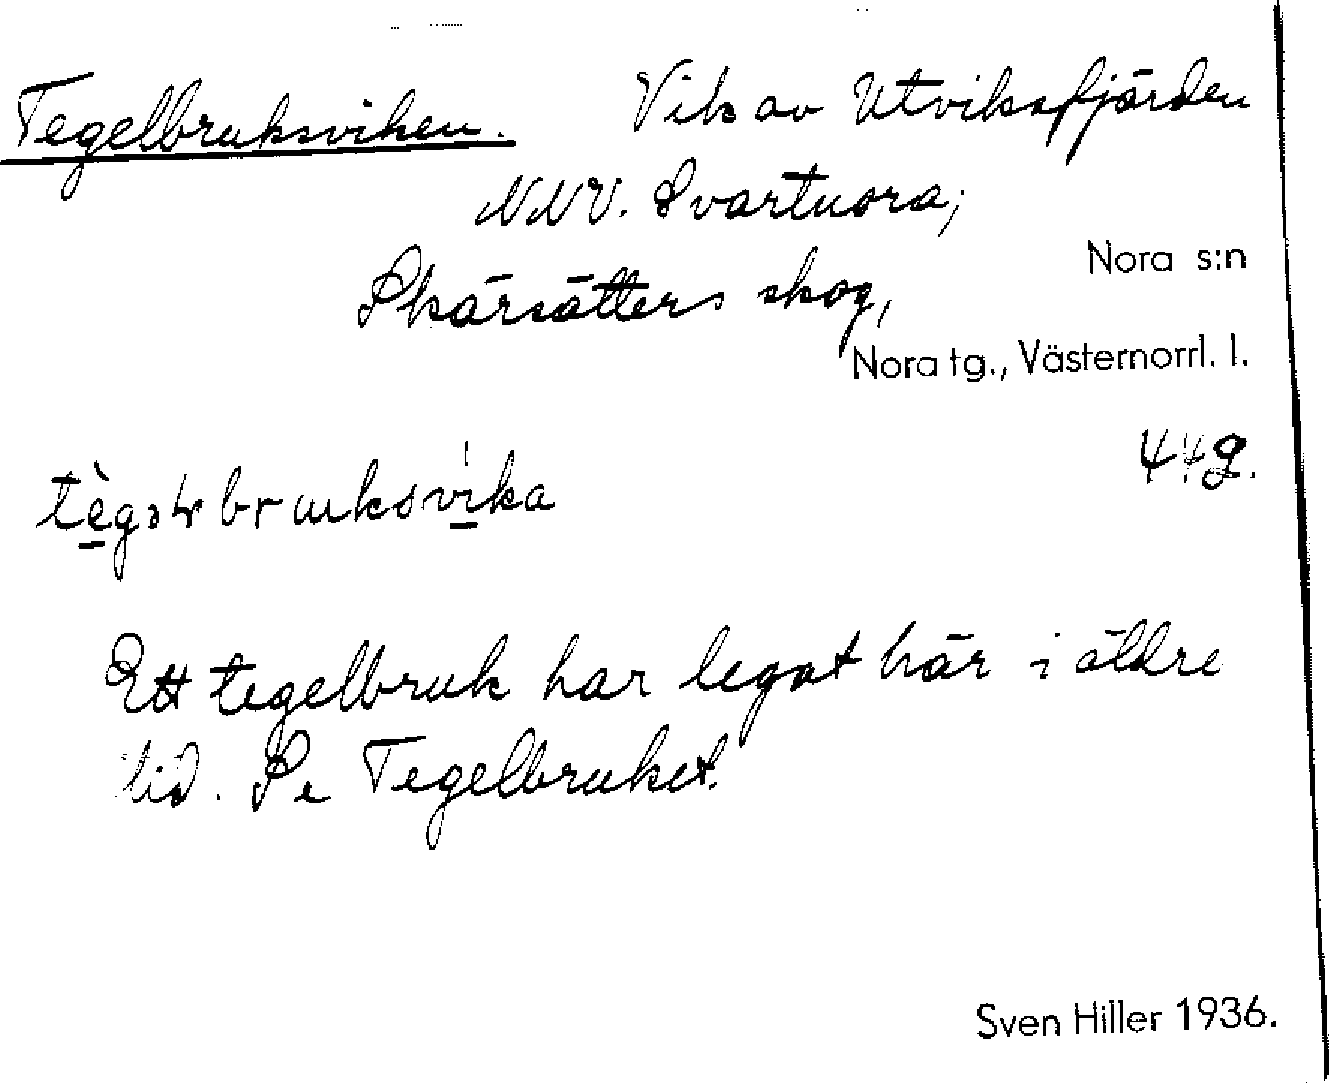 Tegelbruksviken. Vik av Utviksfjärden
NNV. Svartnora;
Nora s:n
Skärsätters skog,
Nora tg., Västernorrl. l.
44g.
Ett tegelbruk har legat här i äldre
tid. Se Tegelbruket.
Sven Hiller 1936.